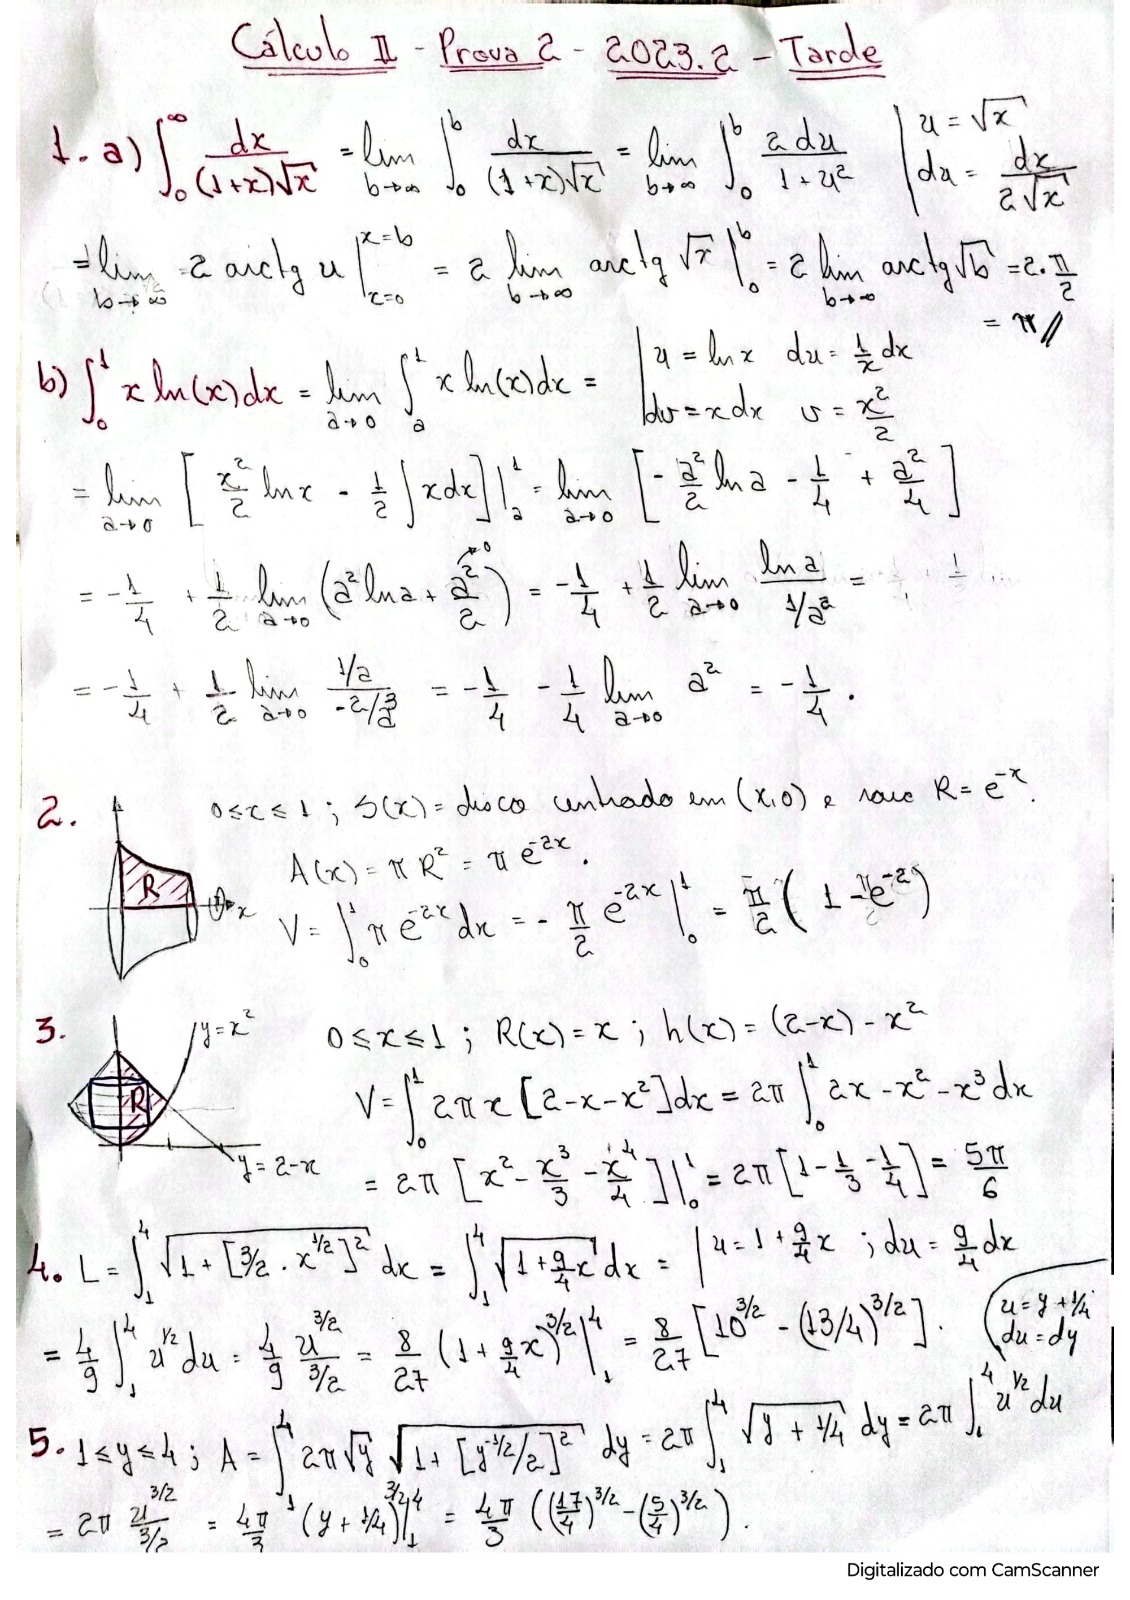 Cálculo II - Prova 2 - 2023.2 - Tarde
1. a) ∫_0^∞ dx/((1+x)√x) = lim_{b→∞} ∫_0^b dx/((1+x)√x) = lim_{b→∞} ∫_0^b 2du/(1+u²) | u = √x du = dx/(2√x)
= lim_{b→∞} 2 arctg u |_{x=0}^{x=b} = 2 lim_{b→∞} arctg √x |_0^b = 2 lim_{b→∞} arctg √b = 2·π/2
= π //
b) ∫_0^1 x ln(x)dx = lim_{a→0} ∫_a^1 x ln(x)dx = | u = ln x du = 1/x dx
dv = x dx v = x²/2
= lim_{a→0} [x²/2 ln x - 1/2 ∫x dx]|_a^1 = lim_{a→0} [-a²/2 ln a - 1/4 + a²/4]
= -1/4 + 1/2 lim_{a→0} (a² ln a + a²/2 →0) = -1/4 + 1/2 lim_{a→0} ln a/(1/a²) =
= -1/4 + 1/2 lim_{a→0} (1/a)/(-2/a³) = -1/4 - 1/4 lim_{a→0} a² = -1/4 .
2. 0≤x≤1 ; S(x) = disco centrado em (x,0) e raio R = e^{-x}.
A(x) = π R² = π e^{-2x}.
R x
V = ∫_0^1 π e^{-2x} dx = -π/2 e^{-2x} |_0^1 = π/2 (1 - e^{-2})
3. y = x² 0≤x≤1 ; R(x) = x ; h(x) = (2-x) - x²
R
V = ∫_0^1 2πx [2-x-x²]dx = 2π ∫_0^1 2x - x² - x³ dx
y = 2-x
= 2π [x² - x³/3 - x⁴/4]|_0^1 = 2π [1 - 1/3 - 1/4] = 5π/6
4. L = ∫_1^4 √(1+[3/2 · x^{1/2}]²) dx = ∫_1^4 √(1+9/4 x) dx = | u = 1+9/4 x ; du = 9/4 dx
= 4/9 ∫_1^4 u^{1/2} du = 4/9 u^{3/2}/(3/2) = 8/27 (1+9/4 x)^{3/2} |_1^4 = 8/27 [10^{3/2} - (13/4)^{3/2}].
u = y + 1/4
du = dy
5. 1≤y≤4 ; A = ∫_1^4 2π√y √(1+[y^{-1/2}/2]²) dy = 2π ∫_1^4 √(y + 1/4) dy = 2π ∫_1^4 u^{1/2} du
= 2π u^{3/2}/(3/2) = 4π/3 (y + 1/4)^{3/2} |_1^4 = 4π/3 ((17/4)^{3/2} - (5/4)^{3/2}).
Digitalizado com CamScanner